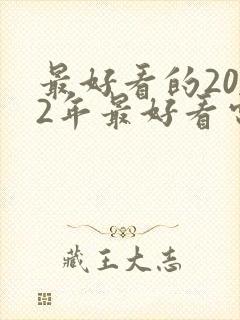 最好看的20
2年最好看
藏王大志